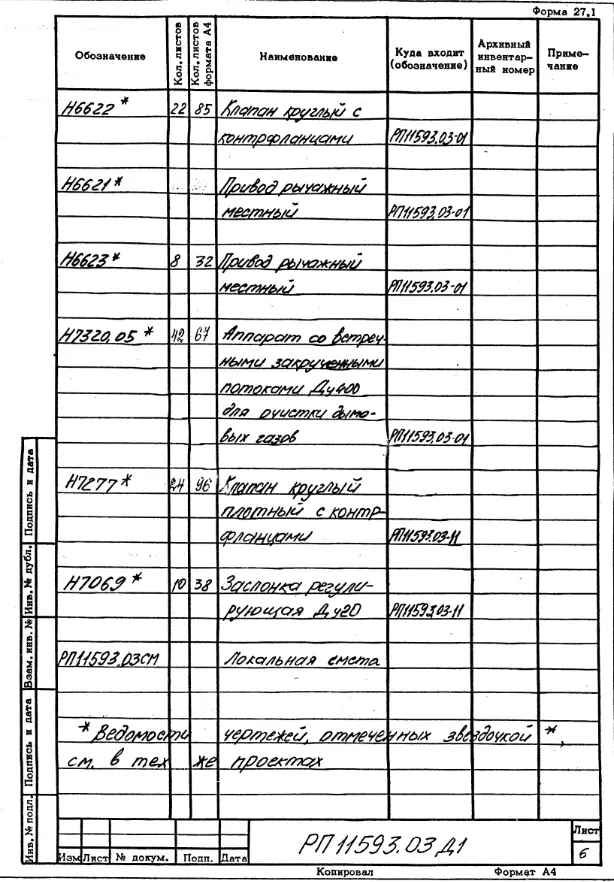 Форма 27.1
Обозначение Кол. листов Кол. листов формата А4 Наименование Куда входит (обозначение) Архивный инвентар-ный номер Приме-чание
Н6622 * 22 85 Клапан круглый с
контрфланцами РП11593.03-01
Н6621 * Привод рычажный
местный РП11593.03-01
Н6623 * 8 32 Привод рычажный
местный РП11593.03-01
Н7320.05 * 42 67 Аппарат со встреч-
ными закрученными
потоками Ду400
для очистки дымо-
вых газов РП11593.03-01
Н7277 * 24 96 Клапан круглый
плотный с контр-
фланцами РП11593.03-11
Н7069 * 10 38 Заслонка регули-
рующая Ду20 РП11593.03-11
РП11593.03СМ Локальная смета
* Ведомости чертежей, отмеченных звездочкой *,
см. в тех же проектах
Инв. № подл. Подпись и дата Взам. инв. № Инв. № дубл. Подпись и дата
РП11593.03Д1
Лист
6
Изм Лист № докум. Подп. Дата
Копировал Формат А4